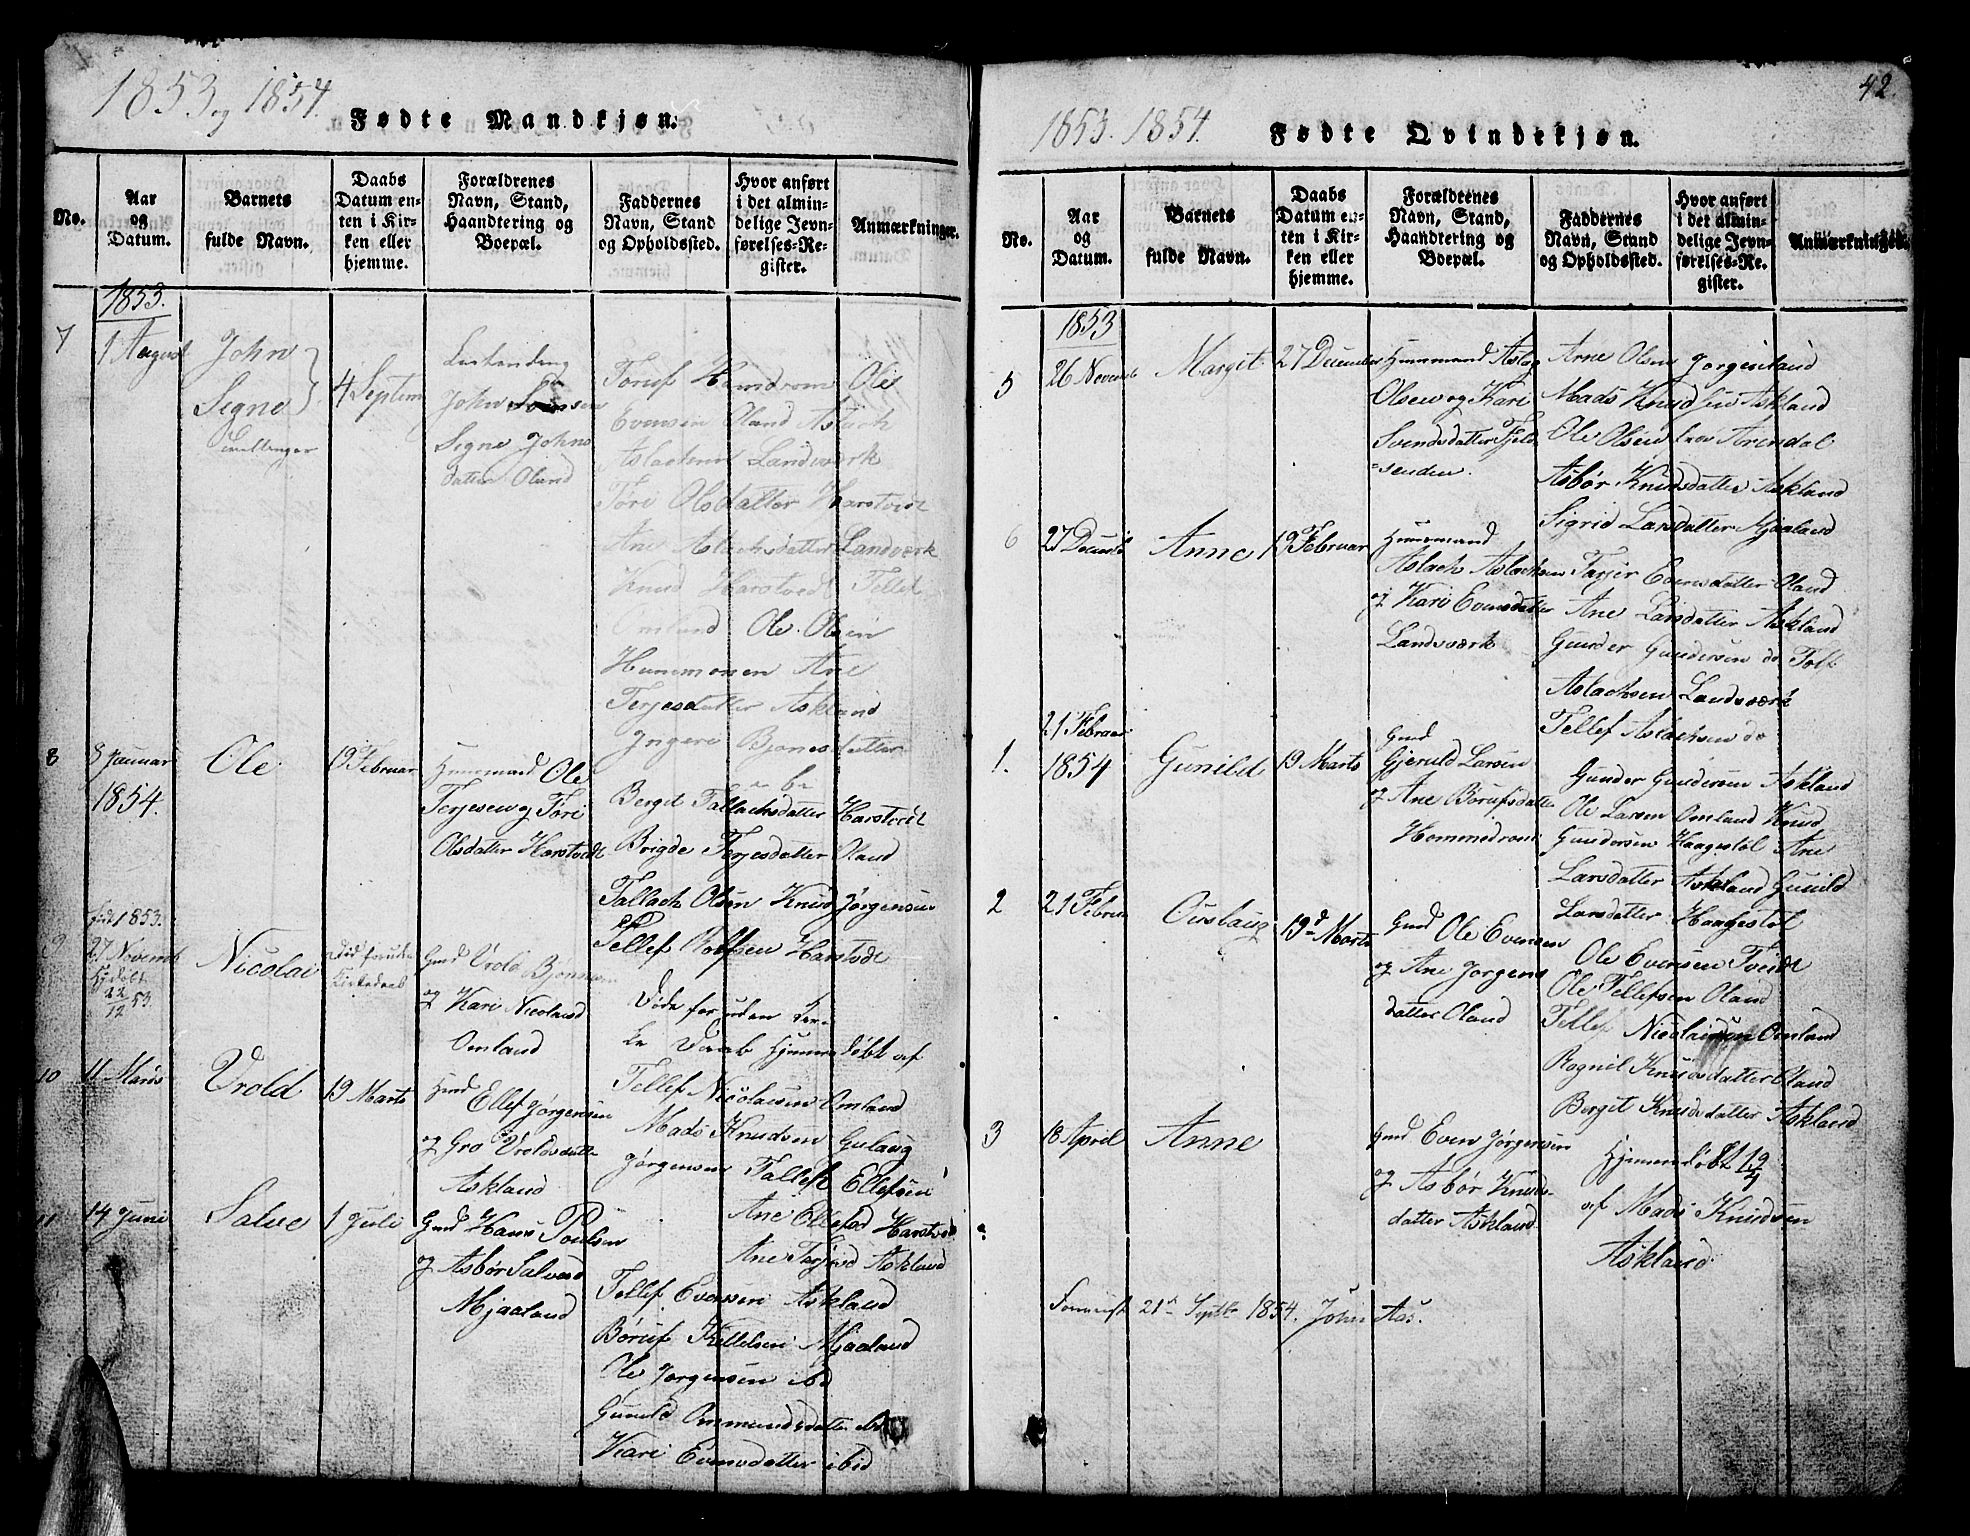 1853 og 1854.
Fødte Mandkjøn.
No.
Aar
og
Datum.
Barnets
fulde Navn.
Daabs
Datum en-
ten i Kir-
ken eller
hjemme.
Forældrenes
Navn, Stand,
Haandtering og
Boepæl.
Faddernes
Navn, Stand
og Opholdssted.
Hvor anført
i det almin-
delige Jevn-
førelses-Re-
gister.
Anmærkninger.
1853.
7
1 August
John
Signe
4 Septem
John
Signe Johns
datter Oland
Ole
Evensen Oland Aslach
Aslachsen Landsværk
Tori Olsdatter Harstvedt
Ane Aslachsdatter Landsværk
Knud Harstvedt Tellef
Omland Ole Olsen
Ane
Terjesdatter Askland
Ingeri Bjonesdatter
8
3 Januar
1854.
Ole
19 Februar
Huusmand Ole
Terjesen og Tori
Olsdatter Harstvedt
Berget Tallachsdatter Harstvedt
Brigde Terjesdatter Oland
Tallach Olsen Knud Jørgensen
Tellef Rolfsen Harstvedt
født 1853.
9
27 Novemb
Hjdøbt
22/12 53.
Nicolai
Død foruden
Kirkedaab
Gmd Vrold Bjonsen
og Kari Nicolaisd
Omland
Døde foruden Kir-
ke Daab Hjemmedøbt af
Tellef Nicolaisen Omland
10
11 Marts
Vrold
19 Marts
Gmd
Ellef Jørgensen
og Gro Vroldsdatt
Askland
Mads Knudsen Gulaug
Jørgensen Tallef Ellefsen
Ane Ellefsd Harstved
Ane Terjesd Askland
11
14 Juni
Salve
1 Juli
Gmd Hans Poulsen
og Asbør Salvesd
Mjaaland
Tellef Evensen Askland
Børuf Kittelsen Mjaaland
Ole Jørgensen ibd
Gunild Ommundsdatter ibd
Kari Evensdatter ibid
42
1853. 1854.
Fødte Qvindekjøn.
No.
Aar
og
Datum.
Barnets
fulde Navn.
Daabs
Datum en-
ten i Kir-
ken eller
hjemme.
Forældrenes
Navn, Stand,
Haandtering og
Boepæl.
Faddernes
Navn, Stand
og Opholdssted.
Hvor anført
i det almin-
delige Jevn-
førelses-Re-
gister.
Anmærkninger.
1853
5
26 Novemb
Margit
27 December
Huusmand Aslag
Olsen og Kari
Svendsdatter Fjeld
=senden.
Arne Olsen Jorgesland
Mads Knudsen Askland
Ole Olsen Arendal
Asbør Knudsdatter Askland
Sigrid Larsdatter Mjaaland
6
27 Decemb
Anne
19 Februar
Huusmand
Aslach Aslachsen
og Kari Evensdatter
Landsværk
Tarjer Evensdatter Oland
Ane Larsdatter Askland
Gunder Gundersen do Tolf
Aslachsen Landsværk
Tellef Aslachsen do
1.
21 Februar
1854
Gunild
19 Marts
Gmd
Gjeruld Larsen
og Ane Børufsdatter
Hommedrom
Gunder Gundersen Askland
Ole Larsen Omland Knud
Gundersen Haagestøl Ane
Larsdatter Askland Gunild
Larsdatter Haagestøl
2
21 Februar
Ouslaug
19d Marts
Gmd Ole Evensen
og Ane Jorgens
datter Oland
Ole Evensen Tveidt
Ole Tellefsen Oland
Tellef Nicolaisen Omland
Ragnil Knudsdatter Oland
Berget Knudsdatter Askland
3
18 April
Anne
Gmd Even Jørgensen
og Asbør Knuds-
datter Askland
Hjemmedøbt 19/4
af Mads Knudsen
Askland
21d Septbr 1854. John Aas.